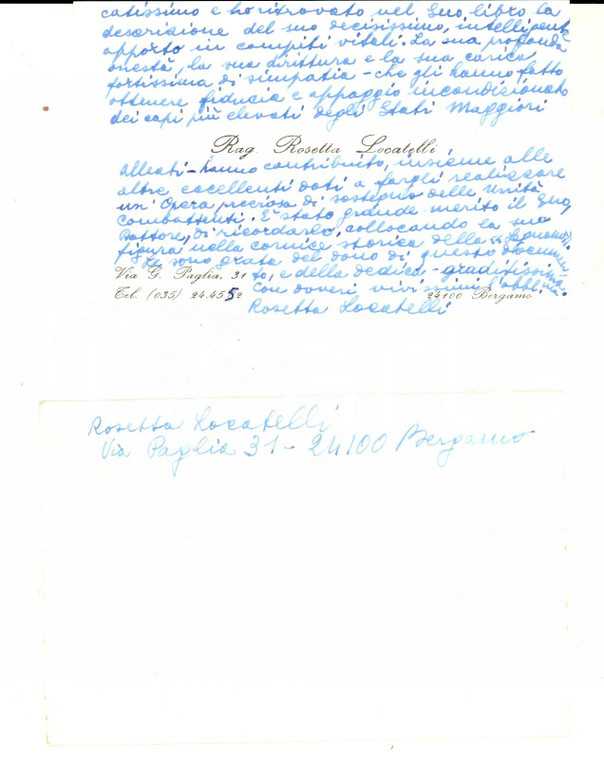 catissimo e ho ritrovato nel Suo libro la
descrizione del suo decisissimo, intelligente
apporto in compiti vitali. La sua profonda
onestà, la sua dirittura e la sua carica
fortissima di simpatia - che gli hanno fatto
ottenere fiducia e appoggio incondizionato
dei capi più elevati degli Stati Maggiori
Rag. Rosetta Locatelli
alleati - hanno contribuito, insieme alle
altre eccellenti doti a fargli realizzare
un'Opera preziosa di sostegno delle Unità
Combattenti. È stato grande merito il Suo,
Dottore, di ricordarlo, collocando la sua
figura nella cornice storica della
Le sono grata del dono di questo documen
to, e della dedica - graditissima.
Via G. Paglia, 31
Con doveri vivissimi
Tel. (035) 24.45 52
24100 Bergamo
Rosetta Locatelli
Rosetta Locatelli
Via Paglia 31 - 24100 Bergamo